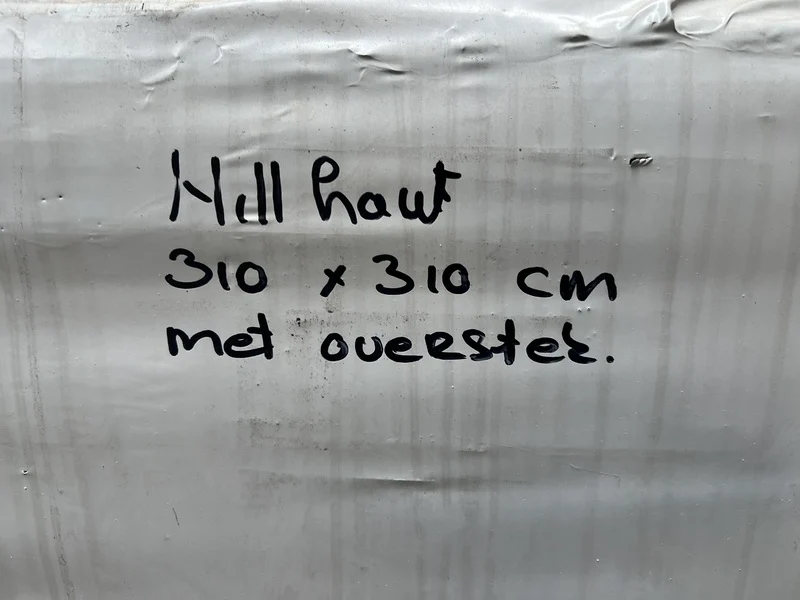 Hillhout
310 x 310 cm
met overstek.